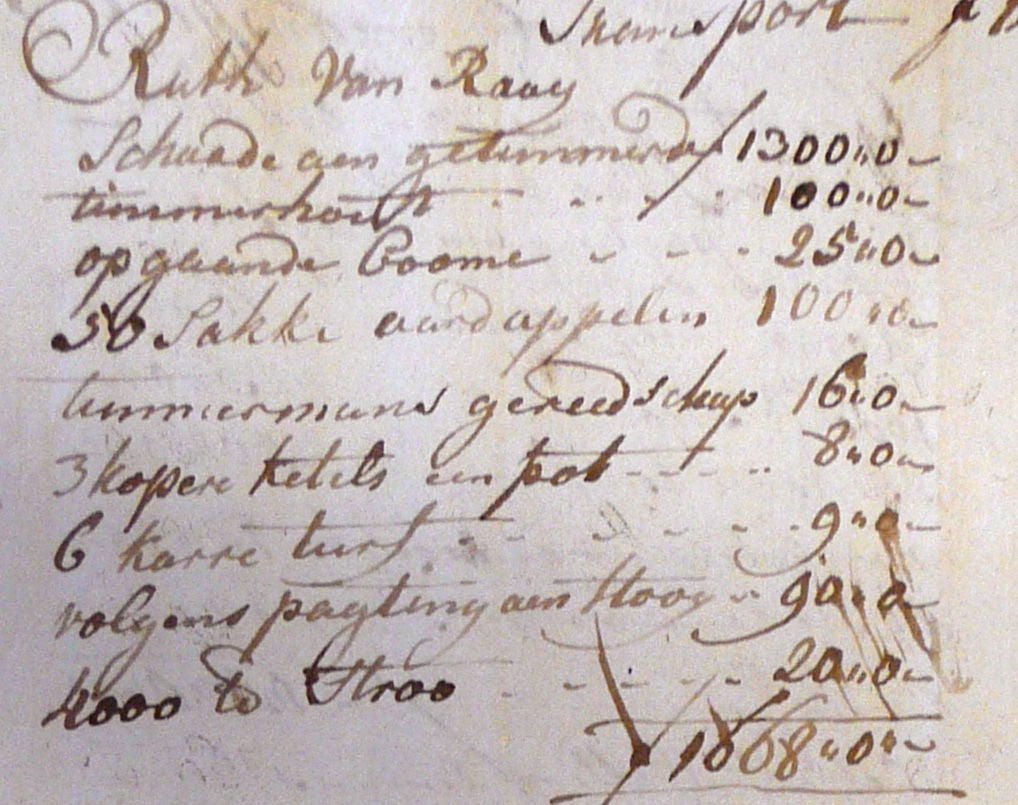 Transport f
Ruth Van Raaij
Schaade aen getimmerde f 1300"0"-
timmerhout - - - - 100"0"-
opgaande boome - - - - 25"0"-
50 Sakke aardappelen 100"0"-
timmermans gereedschap 16"0"-
3 kopere ketels een pot - - - - 8"0"-
6 karre turf - - - - - - 9"0"-
volgens pagting aen Hooy - 90"0"-
4000 lb Stroo - - - - - 20"0"-
f 1668"0"-